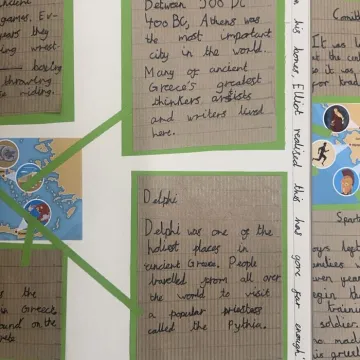 ancient
games. Ev-
years they
ing wrest-
boxing
throwing
se riding.
Between 500 BC
400 BC, Athens was
the most important
city in the world.
Many of ancient
Greece's greatest
thinkers artists
and writers lived
here.
Delphi
Delphi was one of the
holiest places in
ancient Greece. People
travelled from all over
the world to visit
a popular priestess
called the Pythia.
his bones, Elliot realised this has gone far enough.
It was
the
it was
for
Spart
boys
years
train
soldier
the
Greece
and on the